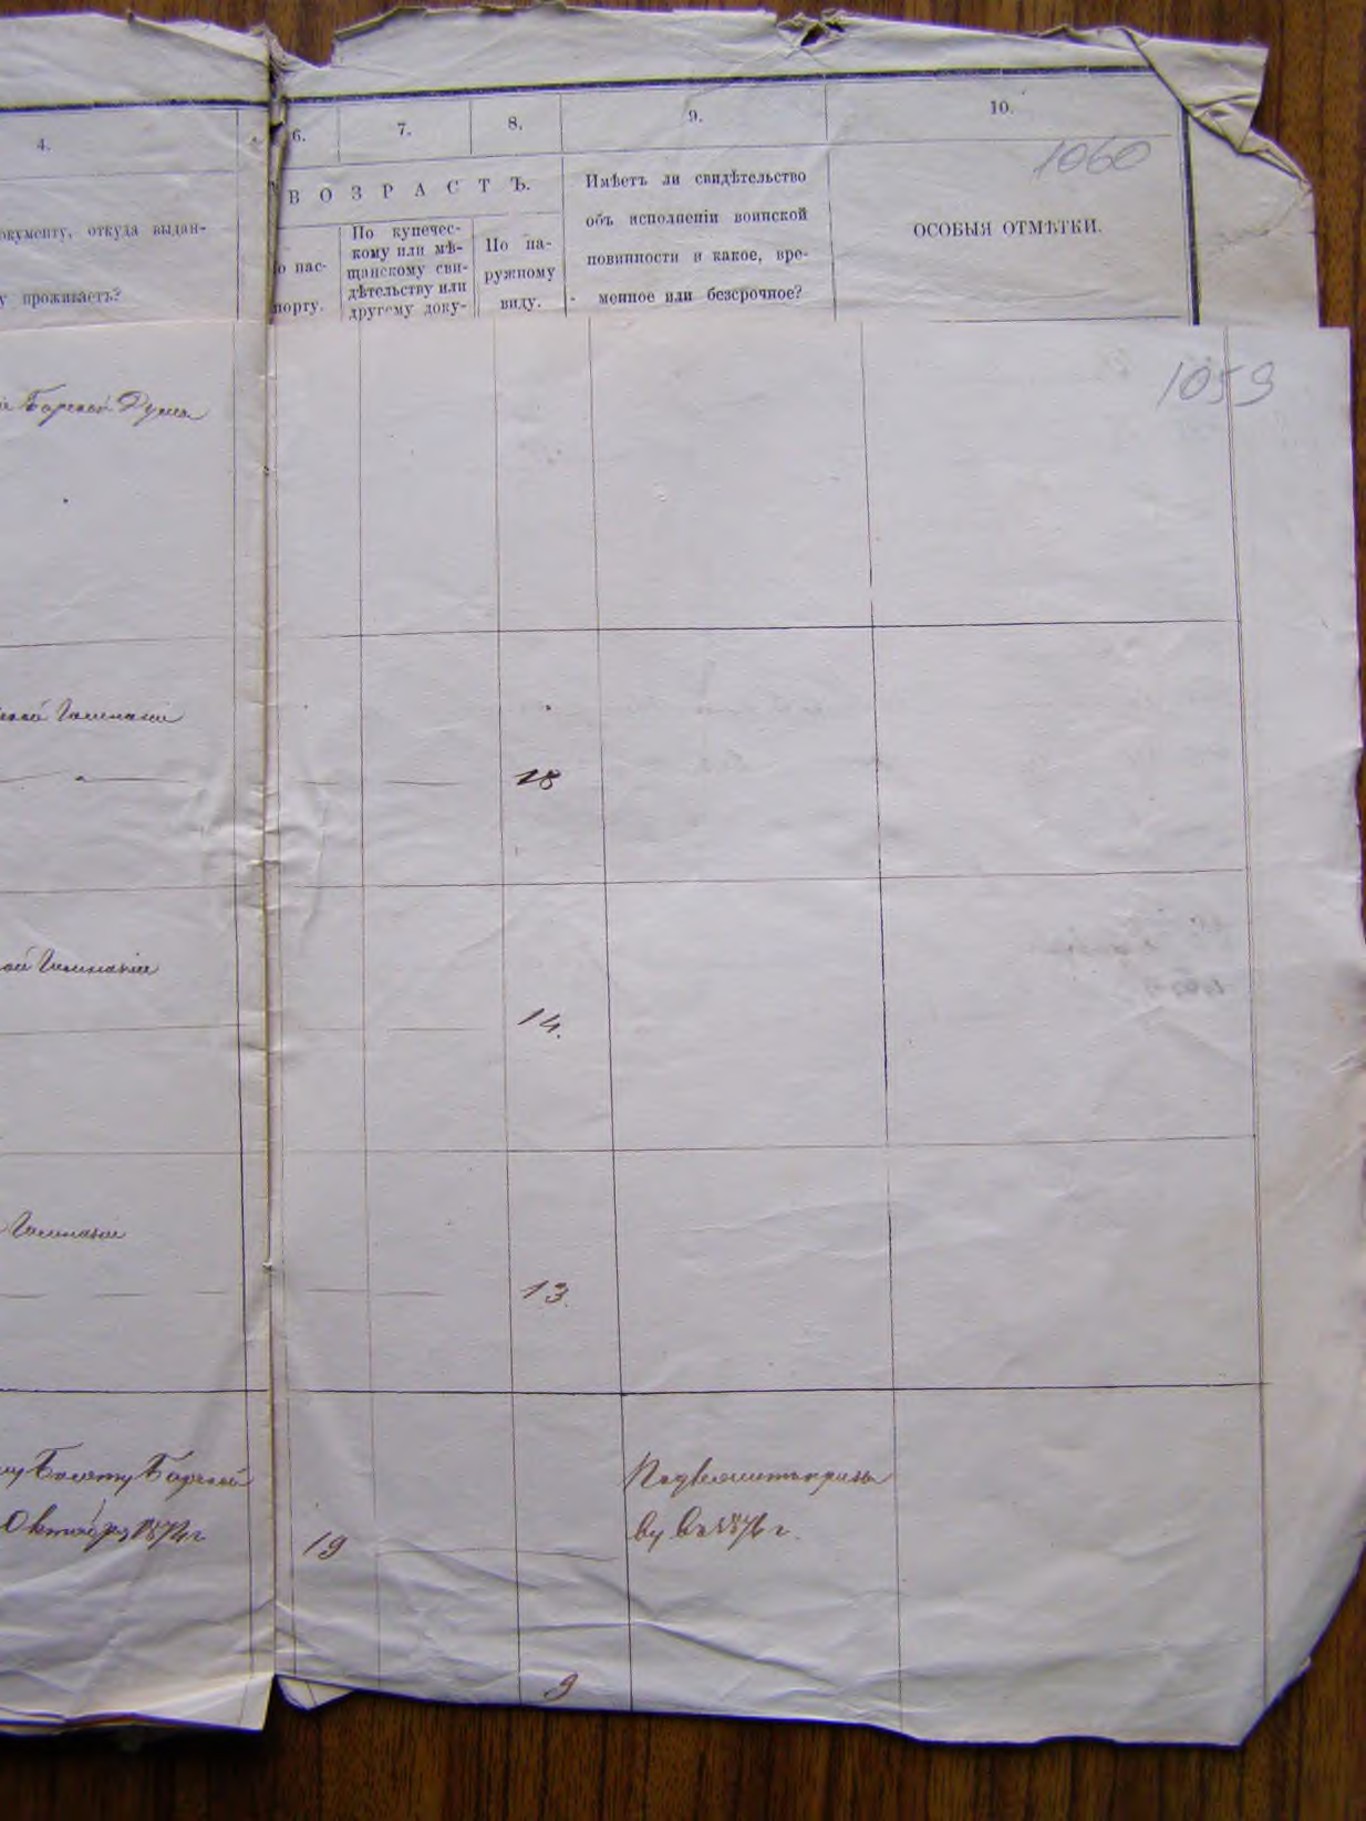 4.
6.
7.
8.
9.
10.
1060
ВОЗРАСТЪ.
окументу, откуда выдан-
у проживаетъ?
о пас-
порту.
По купечес-
кому или мѣ-
щанскому сви-
дѣтельству или
другому доку-
По на-
ружному
виду.
Имѣетъ ли свидѣтельство
объ исполненіи воинской
повинности и какое, вре-
менное или безсрочное?
ОСОБЫЯ ОТМѢТКИ.
1059
Барской Думы
Гимназіи
18
ой Гимназіи
14.
Гимназіи
13.
Билету Барской
Октября 1874 г
19
Подлежитъ призы
ву въ 1876 г.
9